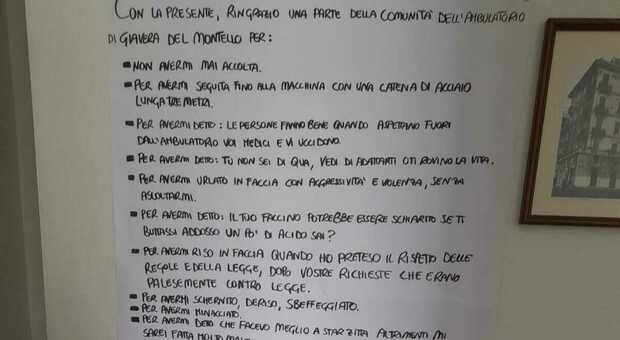 CON LA PRESENTE, RINGRAZIO UNA PARTE DELLA COMUNITÀ DELL'AMBULATORIO
DI GIAVERA DEL MONTELLO PER:
- NON AVERMI MAI ACCOLTA.
- PER AVERMI SEGUITA FINO ALLA MACCHINA CON UNA CATENA DI ACCIAIO
LUNGA TRE METRI.
- PER AVERMI DETTO: LE PERSONE FANNO BENE QUANDO ASPETTANO FUORI
DALL'AMBULATORIO VOI MEDICI E VI UCCIDONO.
- PER AVERMI DETTO: TU NON SEI DI QUA, VEDI DI ADATTARTI O TI ROVINO LA VITA.
- PER AVERMI URLATO IN FACCIA CON AGGRESSIVITÀ E VIOLENZA, SENZA
ASCOLTARMI.
- PER AVERMI DETTO: IL TUO FACCINO POTREBBE ESSERE SCHIARITO SE TI
BUTTASSI ADDOSSO UN PO' DI ACIDO SAI?
- PER AVERMI RISO IN FACCIA QUANDO HO PRETESO IL RISPETTO DELLE
REGOLE E DELLA LEGGE, DOPO VOSTRE RICHIESTE CHE ERANO
PALESEMENTE CONTRO LEGGE.
- PER AVERMI SCHERNITO, DERISO, SBEFFEGGIATO.
- PER AVERMI MINACCIATO.
- PER AVERMI DETTO CHE FACEVO MEGLIO A STAR ZITTA ALTRIMENTI MI
SAREI FATTA MOLTO MALE